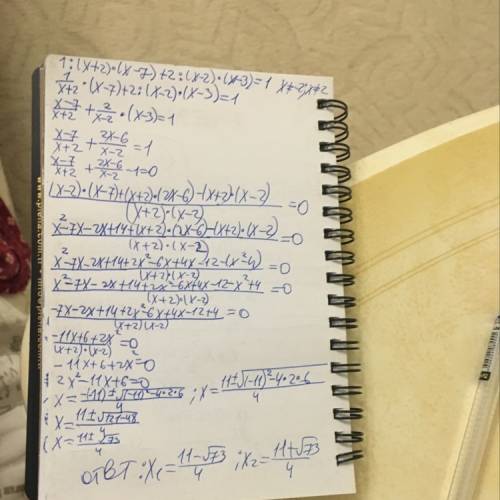 1:(x+2)•(x-7)+2:(x-2)•(x-3)=1 x≠-2; x≠2
1/(x+2)•(x-7)+2:(x-2)•(x-3)=1
(x-7)/(x+2)+2/(x-2)•(x-3)=1
(x-7)/(x+2)+(2x-6)/(x-2)=1
(x-7)/(x+2)+(2x-6)/(x-2)-1=0
((x-2)•(x-7)+(x+2)•(2x-6)-(x+2)•(x-2))/((x+2)•(x-2))=0
(x²-7x-2x+14+(x+2)•(2x-6)-(x+2)•(x-2))/((x+2)•(x-2))=0
(x²-7x-2x+14+2x²-6x+4x-12-(x²-4))/((x+2)•(x-2))=0
(x²-7x-2x+14+2x²-6x+4x-12-x²+4)/((x+2)•(x-2))=0
(-7x-2x+14+2x²-6x+4x-12+4)/((x+2)(x-2))=0
(-11x+6+2x²)/((x+2)•(x-2))=0
-11x+6+2x²=0
2x²-11x+6=0
x=(-(-11)±√((-11)²-4•2•6))/4; x=(11±√((-11)²-4•2•6))/4
x=(11±√(121-48))/4
x=(11±√73)/4
ответ: x₁=(11-√73)/4; x₂=(11+√73)/4